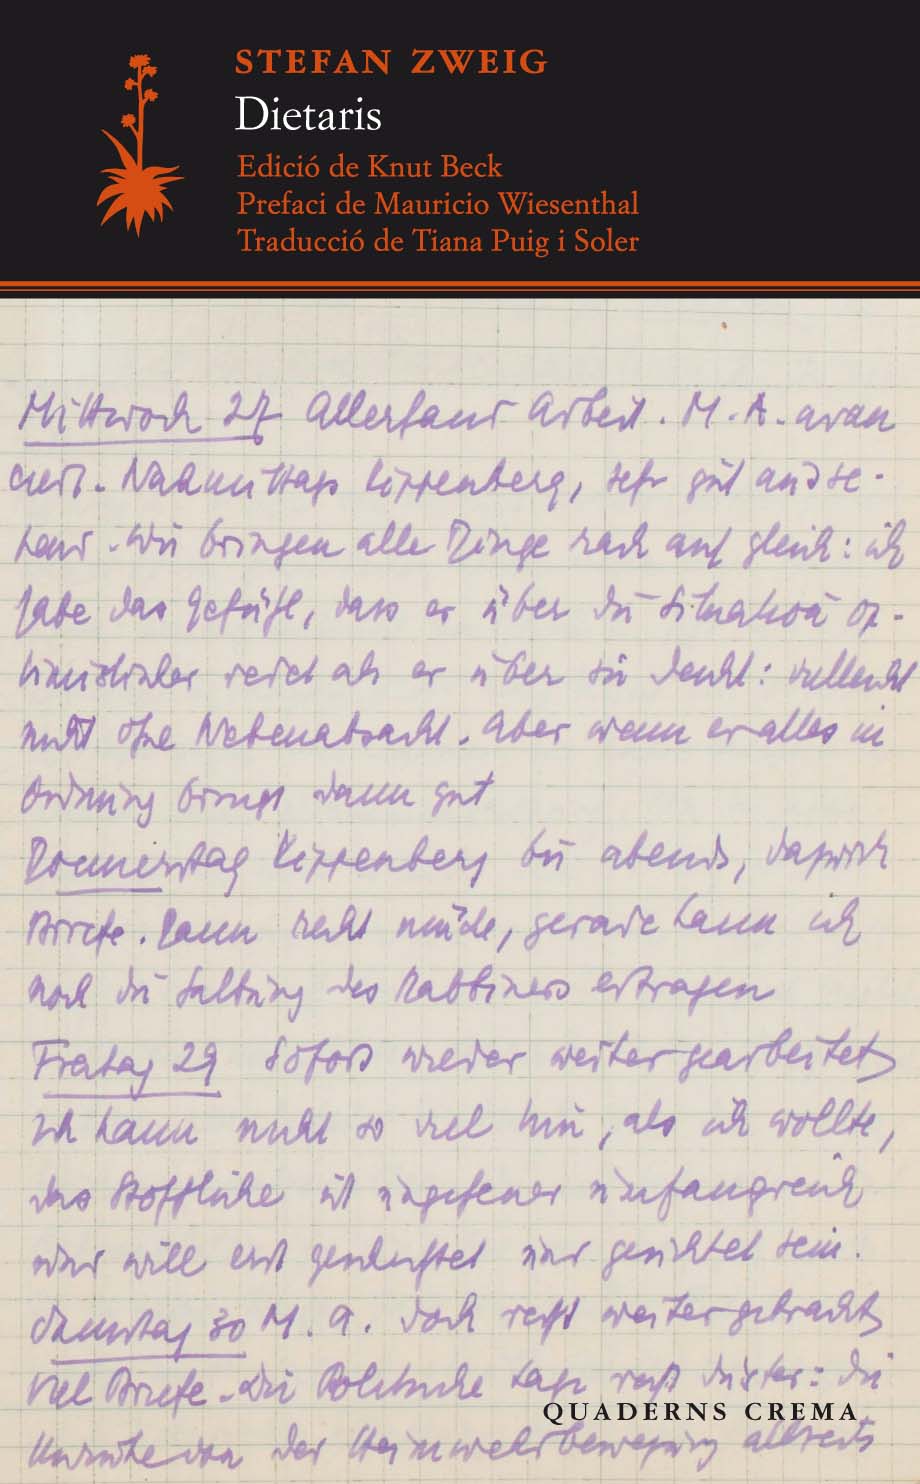 STEFAN ZWEIG
Dietaris
Edició de Knut Beck
Prefaci de Mauricio Wiesenthal
Traducció de Tiana Puig i Soler
Mittwoch 27 Allerhand Arbeit. M. A. avan
ciert. Nachmittags Kippenberg, sehr gut ausse-
hend. Wir bringen alle Dinge rasch auf gleich: ich
habe das Gefühl, dass er über die Situation op-
timistischer redet als er über sie denkt: vielleicht
nicht ohne Nebenabsicht. Aber wenn er alles in
Ordnung bringt dann gut
Donnerstag Kippenberg bis abends, dazwisch
Briefe. Dann recht müde, gerade kann ich
noch die Salbung des Rabbiners ertragen
Freitag 29 Sofort wieder weitergearbeitet
Ich kann nicht so viel tun, als ich wollte,
das Stoffliche ist ungeheuer umfangreich
und will erst gesichtet sein.
Samstag 30 M. A. doch recht weitergebracht
Viel Briefe. Die Politische Lage recht düster: die
der Heimwehrbewegung allseits
QUADERNS CREMA